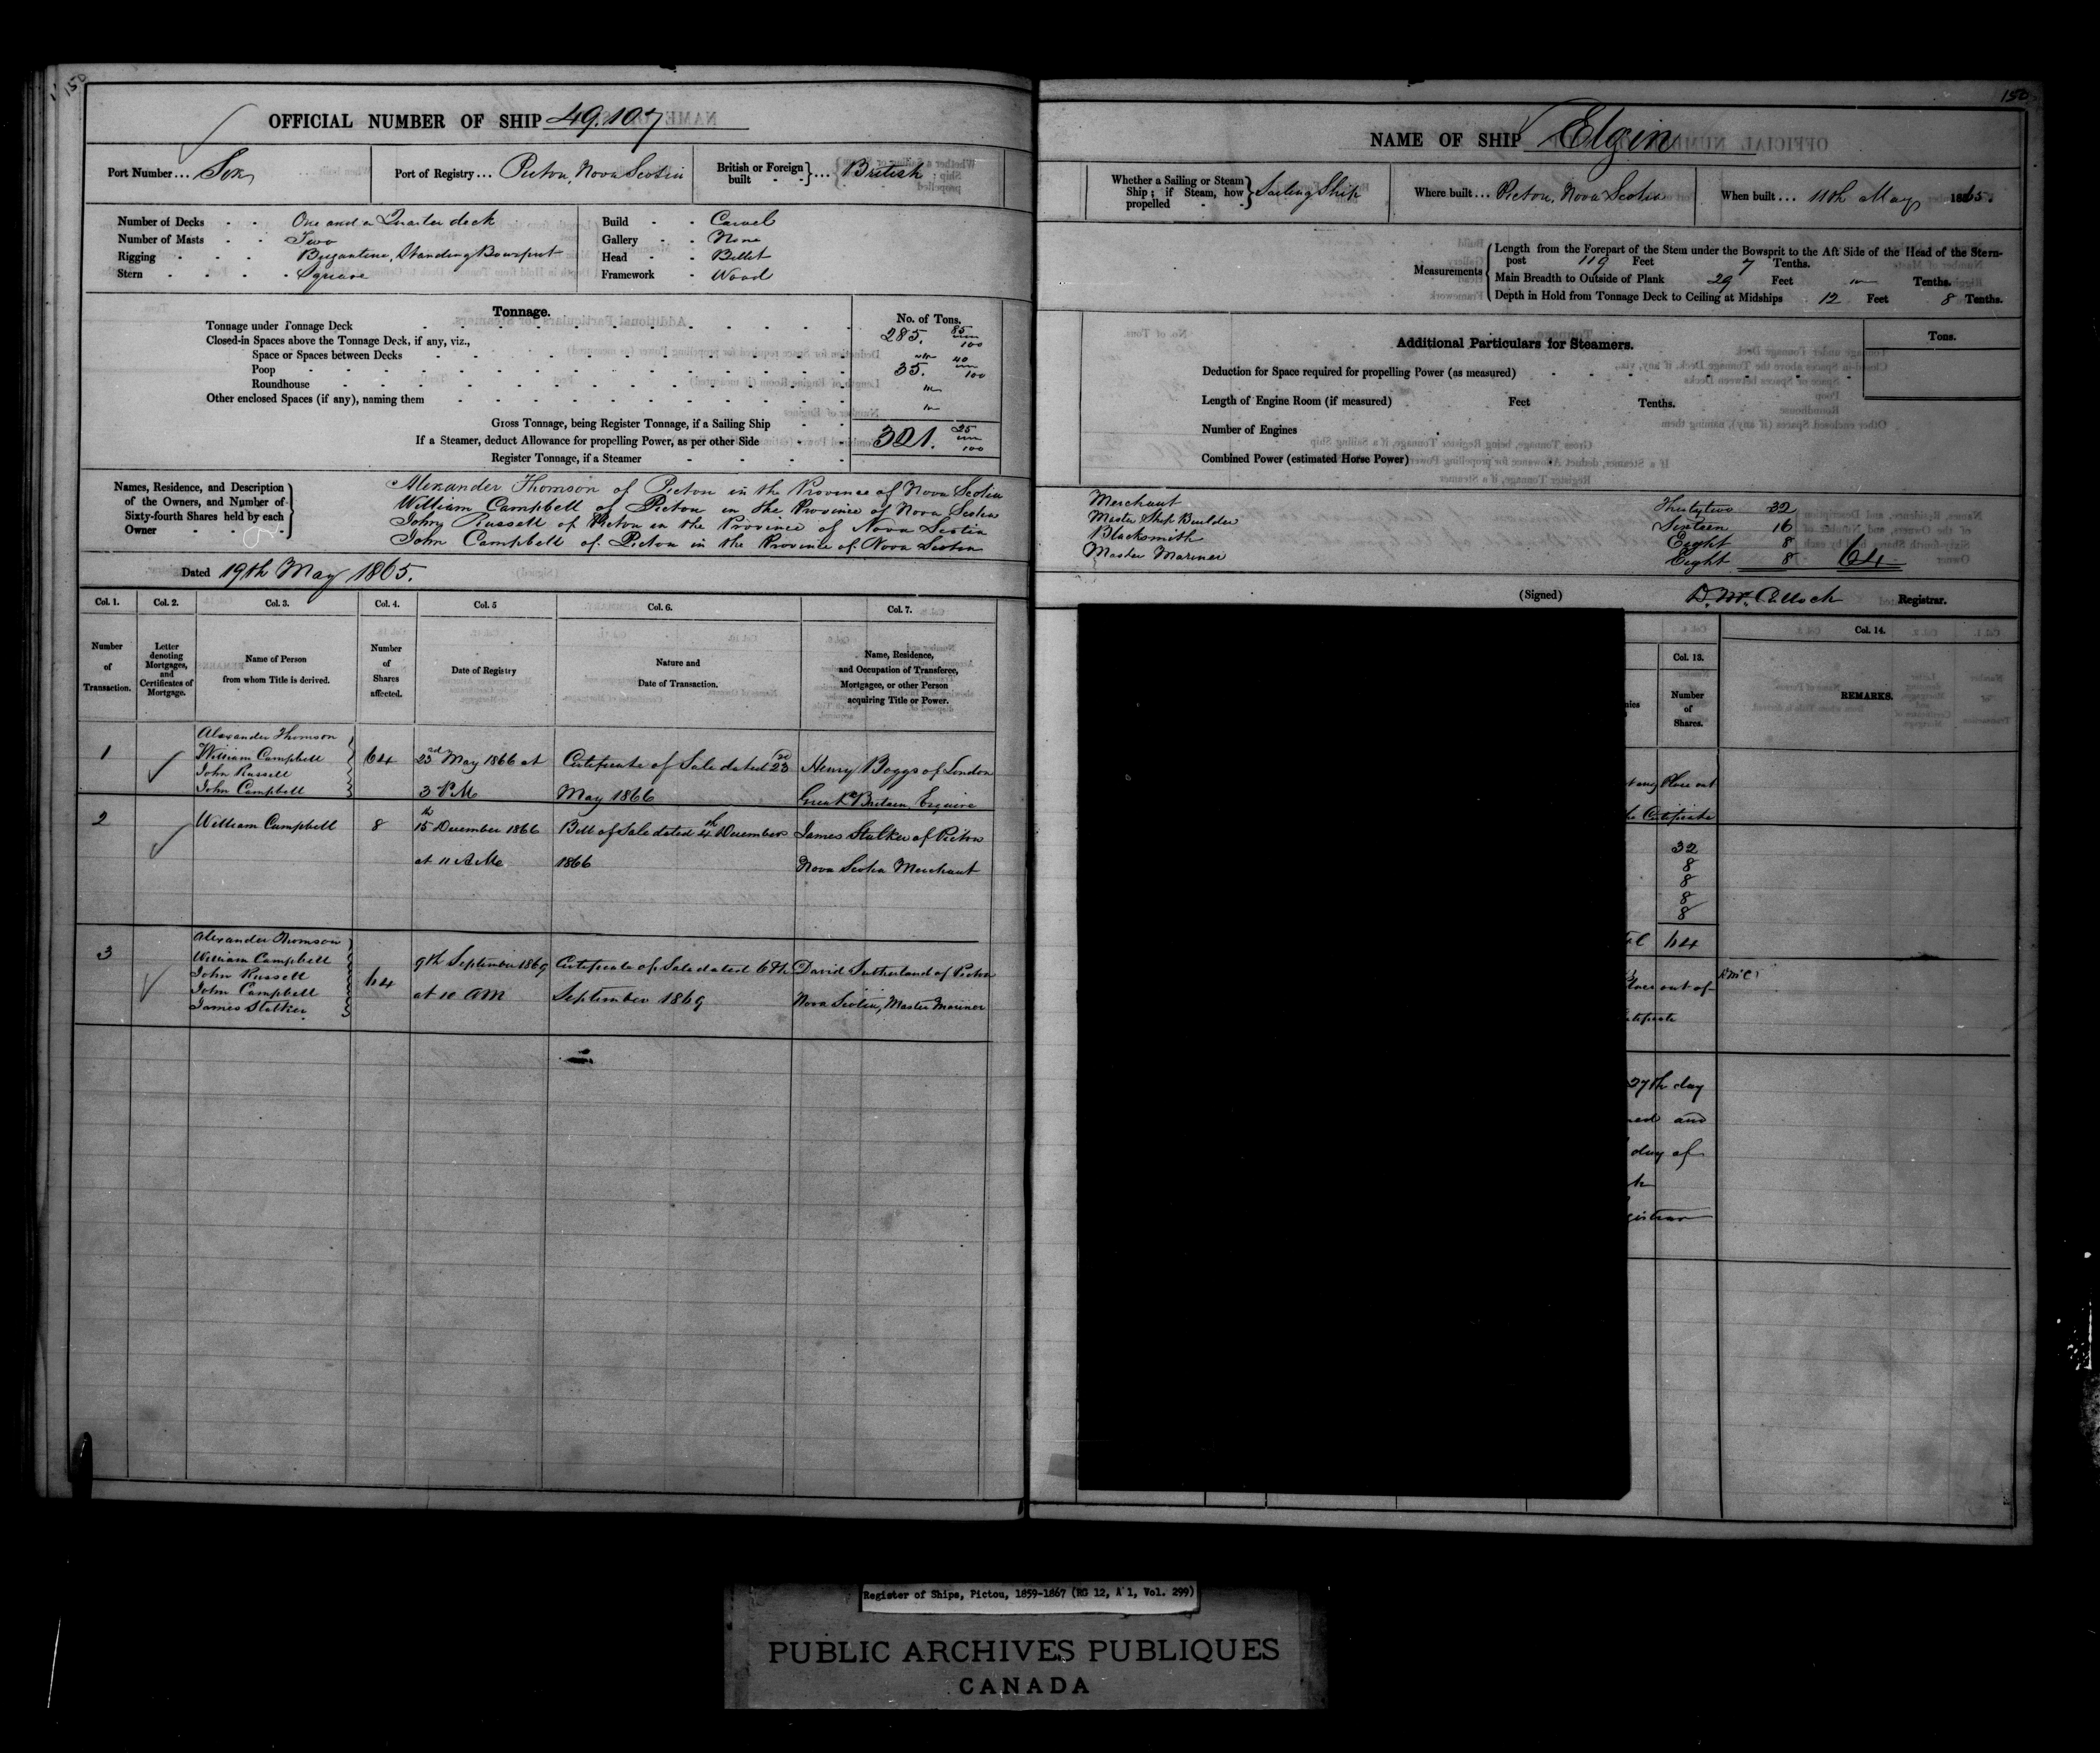 150
OFFICIAL NUMBER OF SHIP 49.107
Port Number... Six
Port of Registry... Pictou, Nova Scotia
British or Foreign built } ... British
Number of Decks - - One and a Quarter deck
Number of Masts - - Two
Rigging - - - Brigantine, Standing Bowsprit
Stern - - - - Square
Build - - Carvel
Gallery - - None
Head - - Billet
Framework - Wood
Tonnage.
No. of Tons.
Tonnage under Tonnage Deck 285. 85/100
Closed-in Spaces above the Tonnage Deck, if any, viz.,
Space or Spaces between Decks
Poop 35. 40/100
Roundhouse
Other enclosed Spaces (if any), naming them
Gross Tonnage, being Register Tonnage, if a Sailing Ship
If a Steamer, deduct Allowance for propelling Power, as per other Side 321. 25/100
Register Tonnage, if a Steamer
Names, Residence, and Description of the Owners, and Number of Sixty-fourth Shares held by each Owner
Alexander Thomson of Picton in the Province of Nova Scotia
William Campbell of Picton in the Province of Nova Scotia
John Russell of Picton in the Province of Nova Scotia
John Campbell of Picton in the Province of Nova Scotia
Dated 19th May 1865.
Col. 1. Col. 2. Col. 3. Col. 4. Col. 5 Col. 6. Col. 7.
Number of Transaction.
Letter denoting Mortgages, and Certificates of Mortgage.
Name of Person from whom Title is derived.
Number of Shares affected.
Date of Registry
Nature and Date of Transaction.
Name, Residence, and Occupation of Transferee, Mortgagee, or other Person acquiring Title or Power.
1
Alexander Thomson
William Campbell
John Russell
John Campbell
64
23rd May 1866 at
3 PM
Certificate of Sale dated 23
May 1866
Henry Boggs of London
Great Britain Esquire
2
William Campbell
8
15th December 1866
at 11 AM
Bill of Sale dated 4th December
1866
James Stalker of Picton
Nova Scotia Merchant
3
Alexander Thomson
William Campbell
John Russell
John Campbell
James Stalker
64
9th September 1869
at 10 AM
Certificate of Sale dated 6th
September 1869
David Sutherland of Picton
Nova Scotia, Master Mariner
150
NAME OF SHIP Elgin
Whether a Sailing or Steam Ship; if Steam, how propelled } Sailing Ship
Where built... Picton, Nova Scotia
When built... 11th May 1865.
Measurements
Length from the Forepart of the Stem under the Bowsprit to the Aft Side of the Head of the Stern-
post 119 Feet 7 Tenths.
Main Breadth to Outside of Plank 29 Feet Tenths.
Depth in Hold from Tonnage Deck to Ceiling at Midships 12 Feet 8 Tenths.
Additional Particulars for Steamers.
Tons.
Deduction for Space required for propelling Power (as measured)
Length of Engine Room (if measured) Feet Tenths.
Number of Engines
Combined Power (estimated Horse Power)
Merchant Thirtytwo 32
Master Ship Builder Sixteen 16
Blacksmith Eight 8
Master Mariner Eight 8 64
(Signed) D. McCulloch Registrar.
Col. 13. Col. 14.
Number of Shares.
REMARKS.
Place out
Certificate
32
8
8
8
8
64
out of
27th day
and
day of
Register of Ships, Pictou, 1859-1867 (RG 12, A 1, Vol. 299)
PUBLIC ARCHIVES PUBLIQUES
CANADA